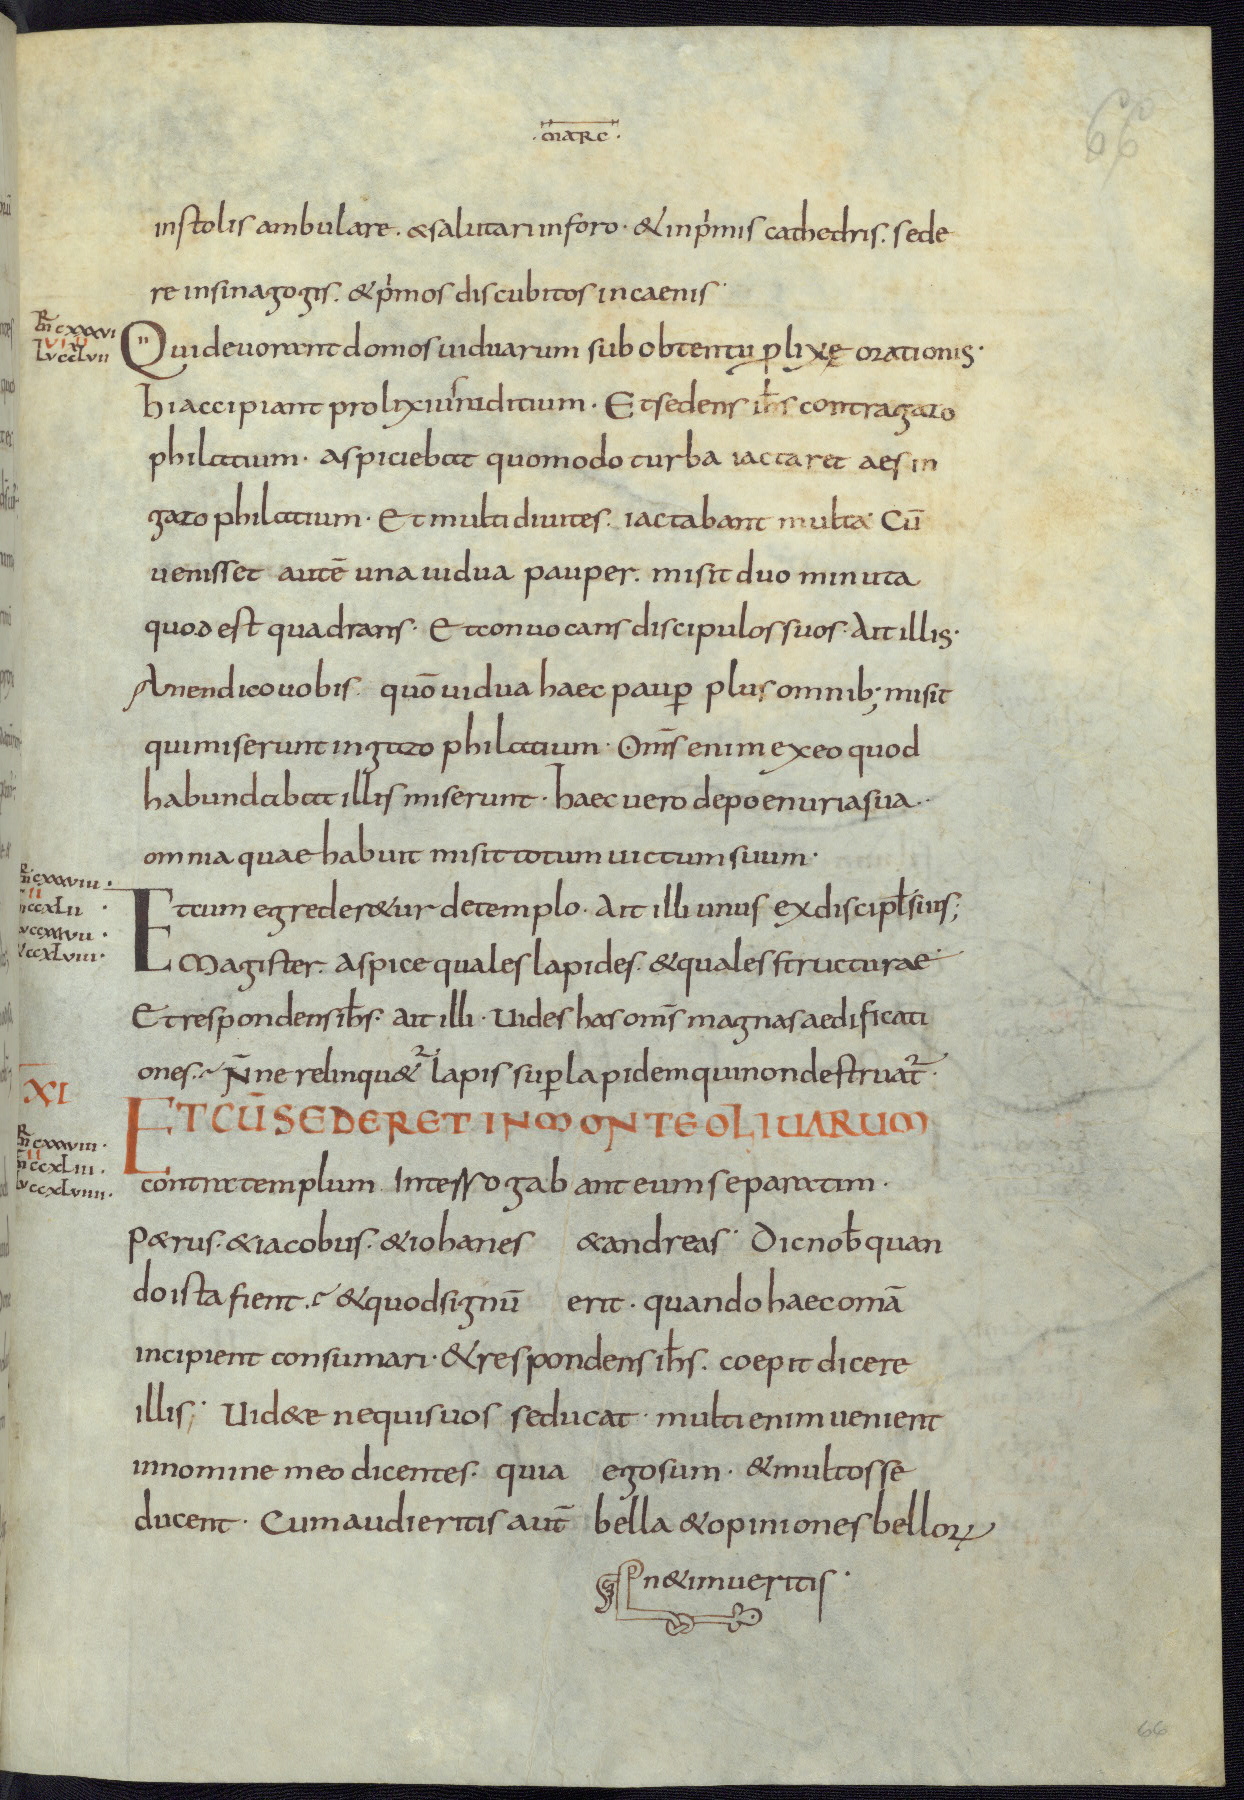 · MARC ·
66
instolis ambulare. &salutari inforo· &inpͥmis cathedris. sede
re insinagogis. &pͥmos discubitos incaenis·
Qui deuorant domos uiduarum sub obtentu ꝓlixę orationis·
hi accipiant prolixius iuditium· Et sedens ih̅s contra gazo
philatium· aspiciebat quomodo turba iactaret aes in
gazo philatium· Et multi diuites. iactabant multa· Cū
uenisset autē una uidua pauper. misit duo minuta
quod est quadrans· Et conuocans discipulos suos· Ait illis·
Amen dico uobis. quō uidua haec pauꝑ plus omnib; misit
qui miserunt in gazo philatium· Om̅s enim ex eo quod
habundabat illis miserunt· haec uero de poenuria sua··
omnia quae habuit misit totum uictum suum·
Et cum egreder&ur detemplo· Ait illi unus ex discipl̅is suis;
Magister. aspice quales lapides. &quales structurae·
Et respondens ih̅s. Ait illi· Uides has om̅s magnas aedificati
ones. N̅ne relinqu&ur lapis suꝑ lapidem qui non destruat̅·
XI
ET CŪ SEDERET IN MONTE OLIUARUM
contra templum Interrogabant eum separatim·
P&rus· &iacobus· &iohanes &andreas· Dic nob̅ quan
do ista fient. &quod signū erit· quando haec omā
incipient consumari· &respondens ih̅s. coepit dicere
illis; Uid&e ne quis uos seducat· multi enim uenient
in nomine meo dicentes· quia ego sum· &multos se
ducent· Cum audieritis aut̅ bella &opiniones bellorꝝ
n&imueritis·
66